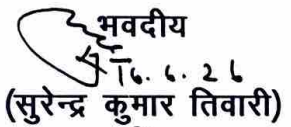 भवदीय
16.6.26
(सुरेन्द्र कुमार तिवारी)